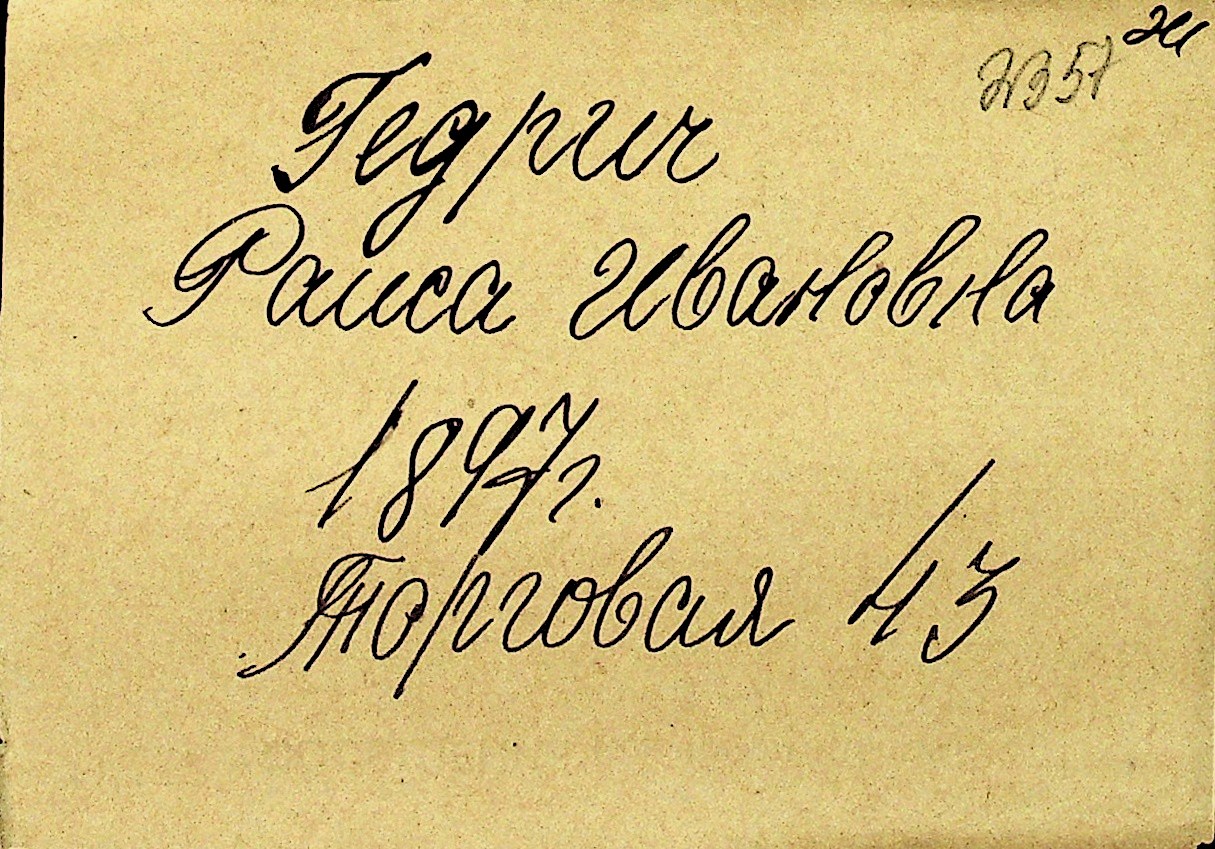 Гедрич
Раиса Ивановна
1897г.
Торговая 43